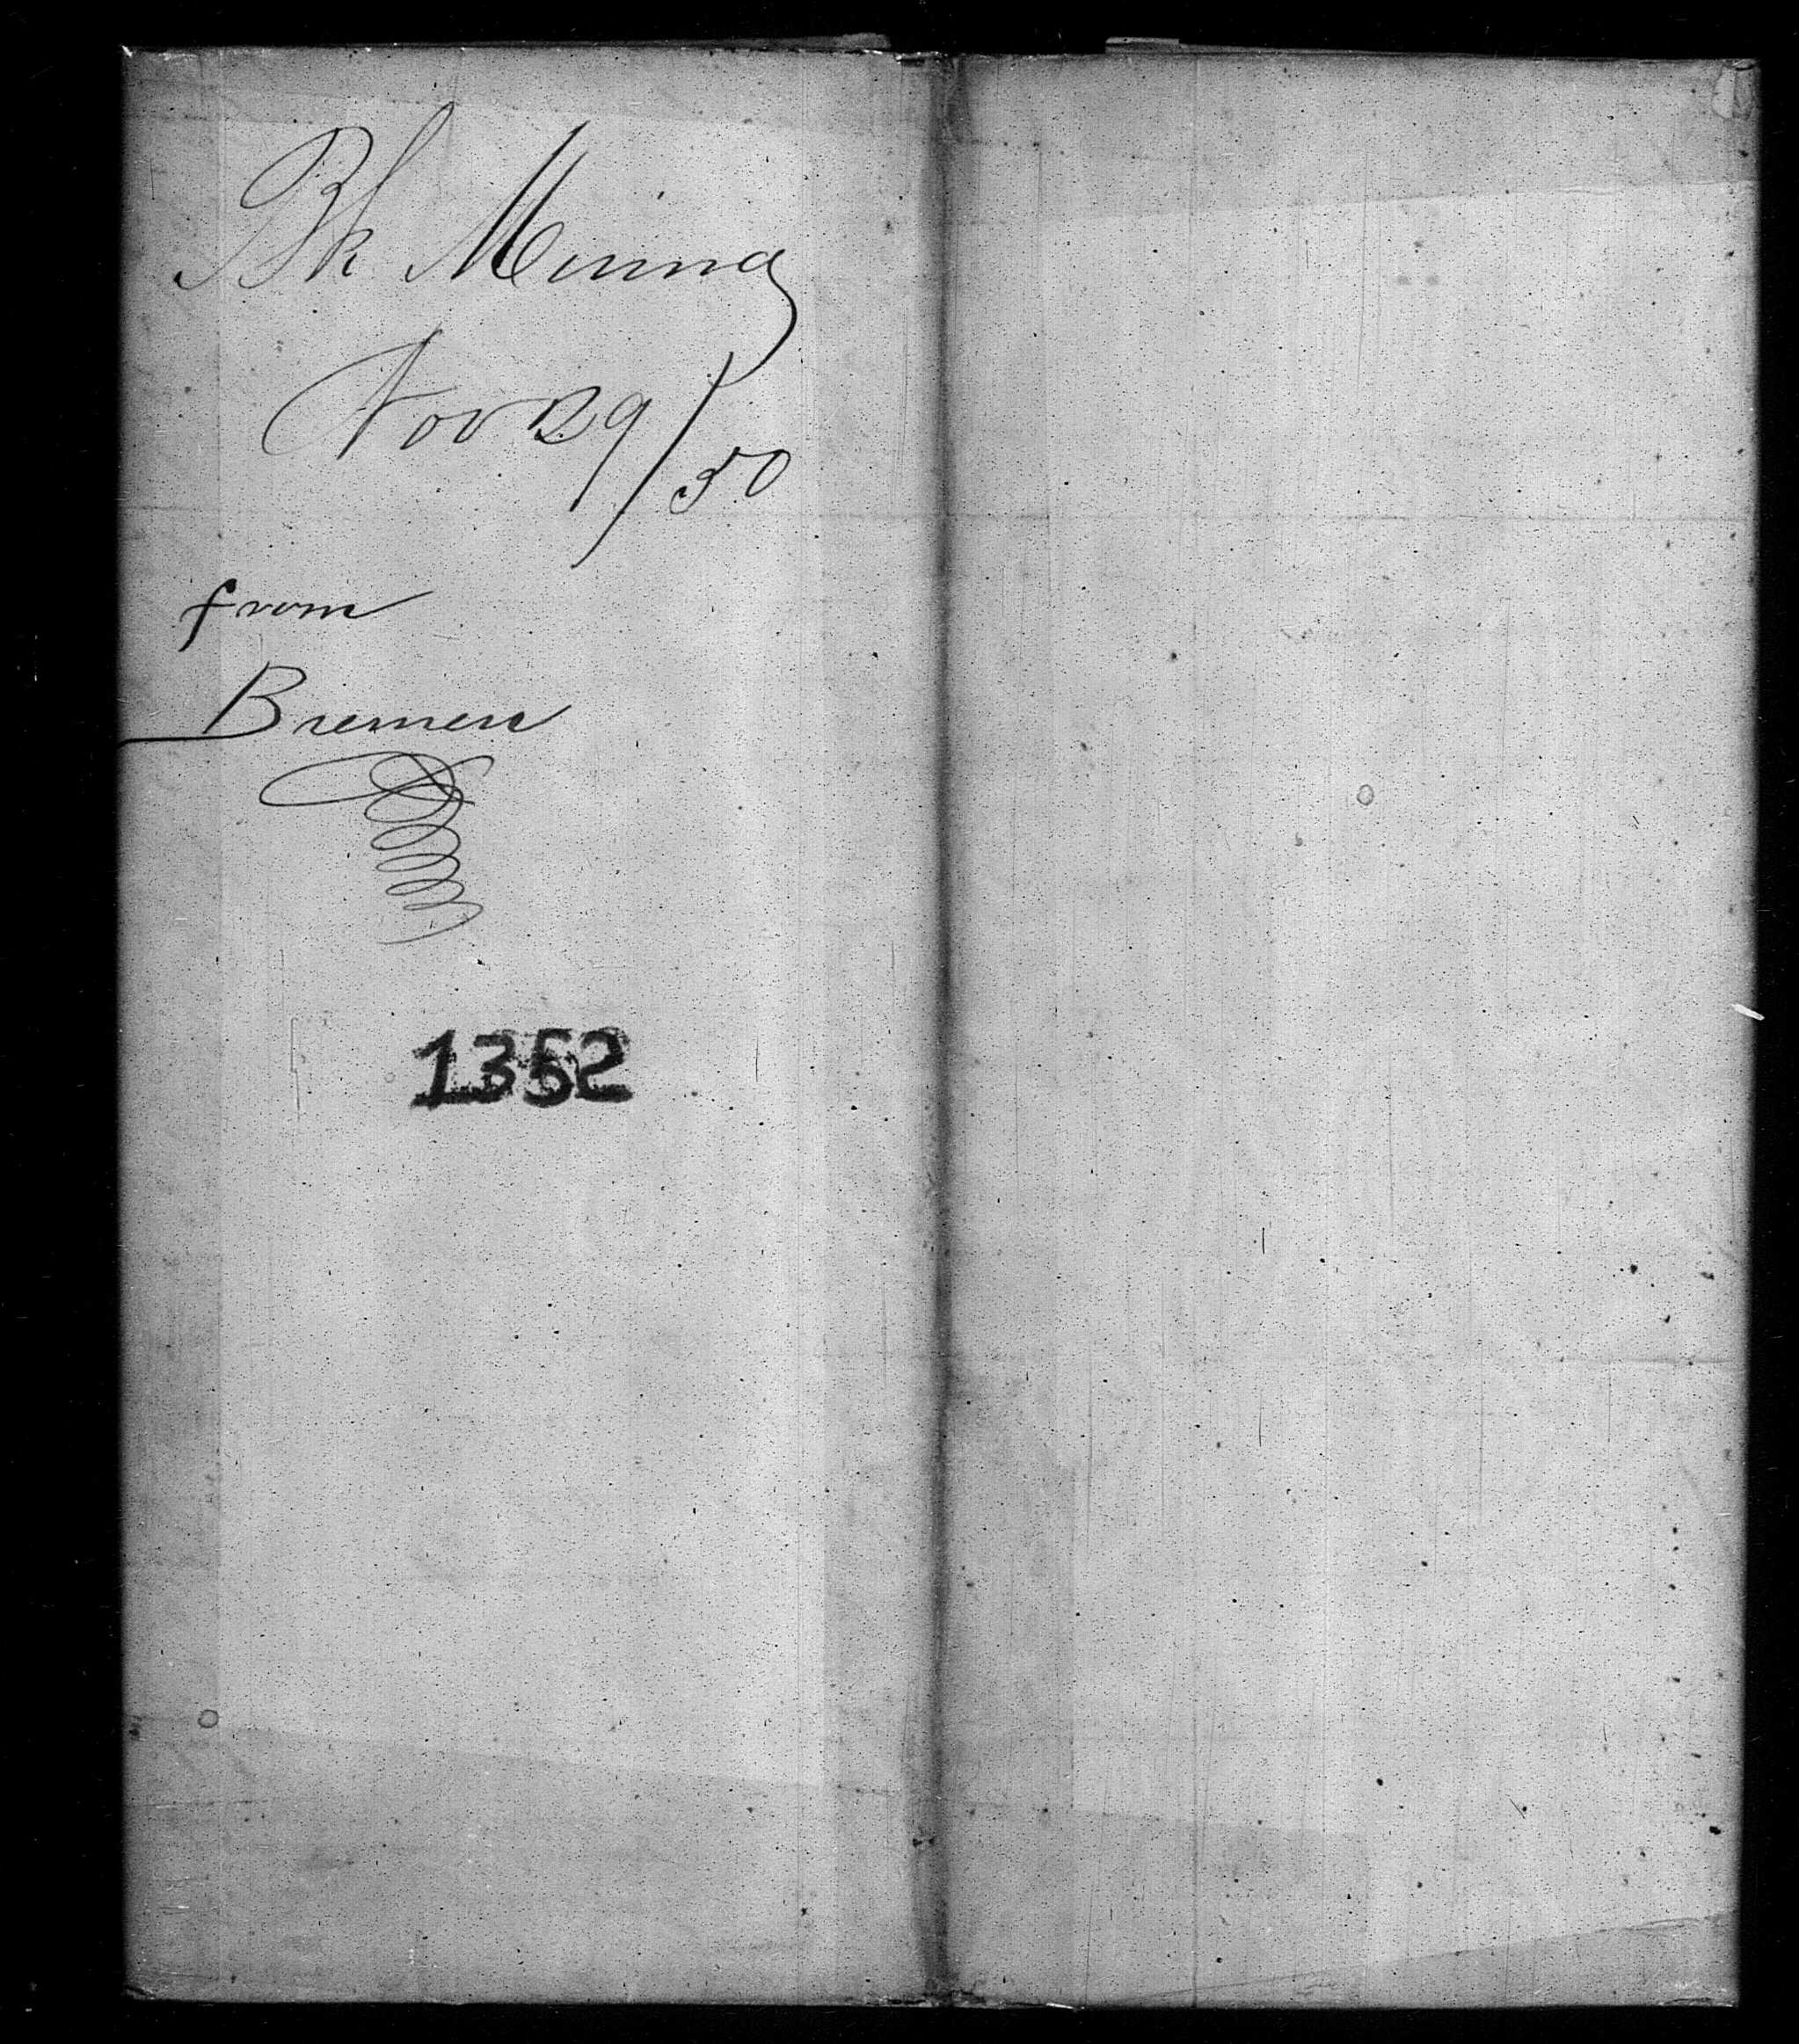 Bk Minna
Nov 29/50
from
Bremen
1352